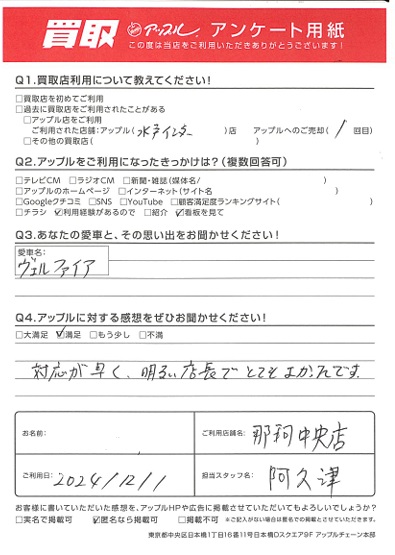 買取 アップル アンケート用紙
この度は当店をご利用いただきありがとうございます！
Q1.買取店利用について教えてください！
□買取店を初めてご利用
□過去に買取店をご利用されたことがある
□アップル店をご利用
ご利用された店舗：アップル（水戸インター）店 アップルへのご売却（1回目）
□その他の買取店（ ）
Q2.アップルをご利用になったきっかけは？（複数回答可）
□テレビCM □ラジオCM □新聞・雑誌（媒体名/ ）
□アップルのホームページ □インターネット（サイト名 ）
□Googleクチコミ □SNS □YouTube □顧客満足度ランキングサイト（ ）
□チラシ ☑利用経験があるので □紹介 ☑看板を見て
Q3.あなたの愛車と、その思い出をお聞かせください！
愛車名：
ヴェルファイア
Q4.アップルに対する感想をぜひお聞かせください！
□大満足 ☑満足 □もう少し □不満
対応が早く、明るい店長でとてもよかったです。
お名前： ご利用店舗名： 那珂中央店
ご利用日： 2024/12/1 担当スタッフ名： 阿久津
お客様に書いていただいた感想を、アップルHPや広告に掲載させていただいてもよろしいでしょうか？
□実名で掲載可 ☑匿名なら掲載可 □掲載不可 ※ご記入がない場合は匿名での掲載とさせていただきます。
東京都中央区日本橋1丁目16番11号日本橋Dスクエア9F アップルチェーン本部